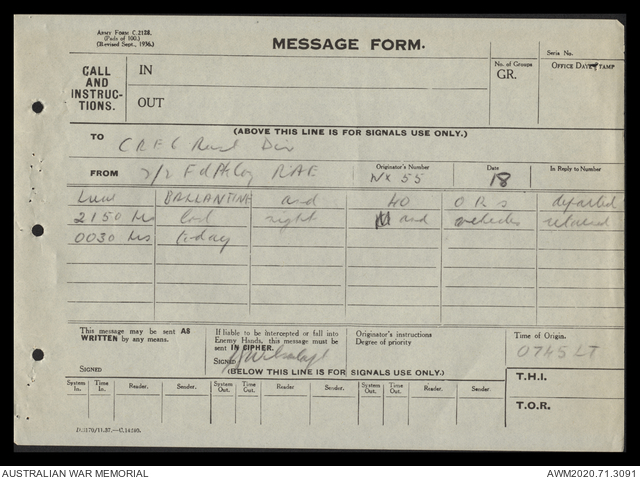 ARMY FORM C.2128.
(Pads of 100.)
(Revised Sept., 1936.)
MESSAGE FORM.
Serial No.
CALL AND INSTRUCTIONS.
IN
OUT
No. of Groups
GR.
OFFICE DATE STAMP
(ABOVE THIS LINE IS FOR SIGNALS USE ONLY.)
TO
FROM 2/2 Fd Pk Coy RAE
Originator's Number
WX 55
Date
18
In Reply to Number
Lieut BALLANTINE and 40 ORs departed
2150 hrs last night and vehicles returned
0030 hrs today
This message may be sent AS WRITTEN by any means.
SIGNED
If liable to be intercepted or fall into Enemy Hands, this message must be sent IN CIPHER.
SIGNED
Originator's instructions
Degree of priority
Time of Origin.
0745 LT
(BELOW THIS LINE IS FOR SIGNALS USE ONLY.)
T.H.I.
T.O.R.
System In. Time In. Reader. Sender. System Out. Time Out. Reader. Sender. System Out. Time Out. Reader. Sender.
AUSTRALIAN WAR MEMORIAL
AWM2020.71.3091